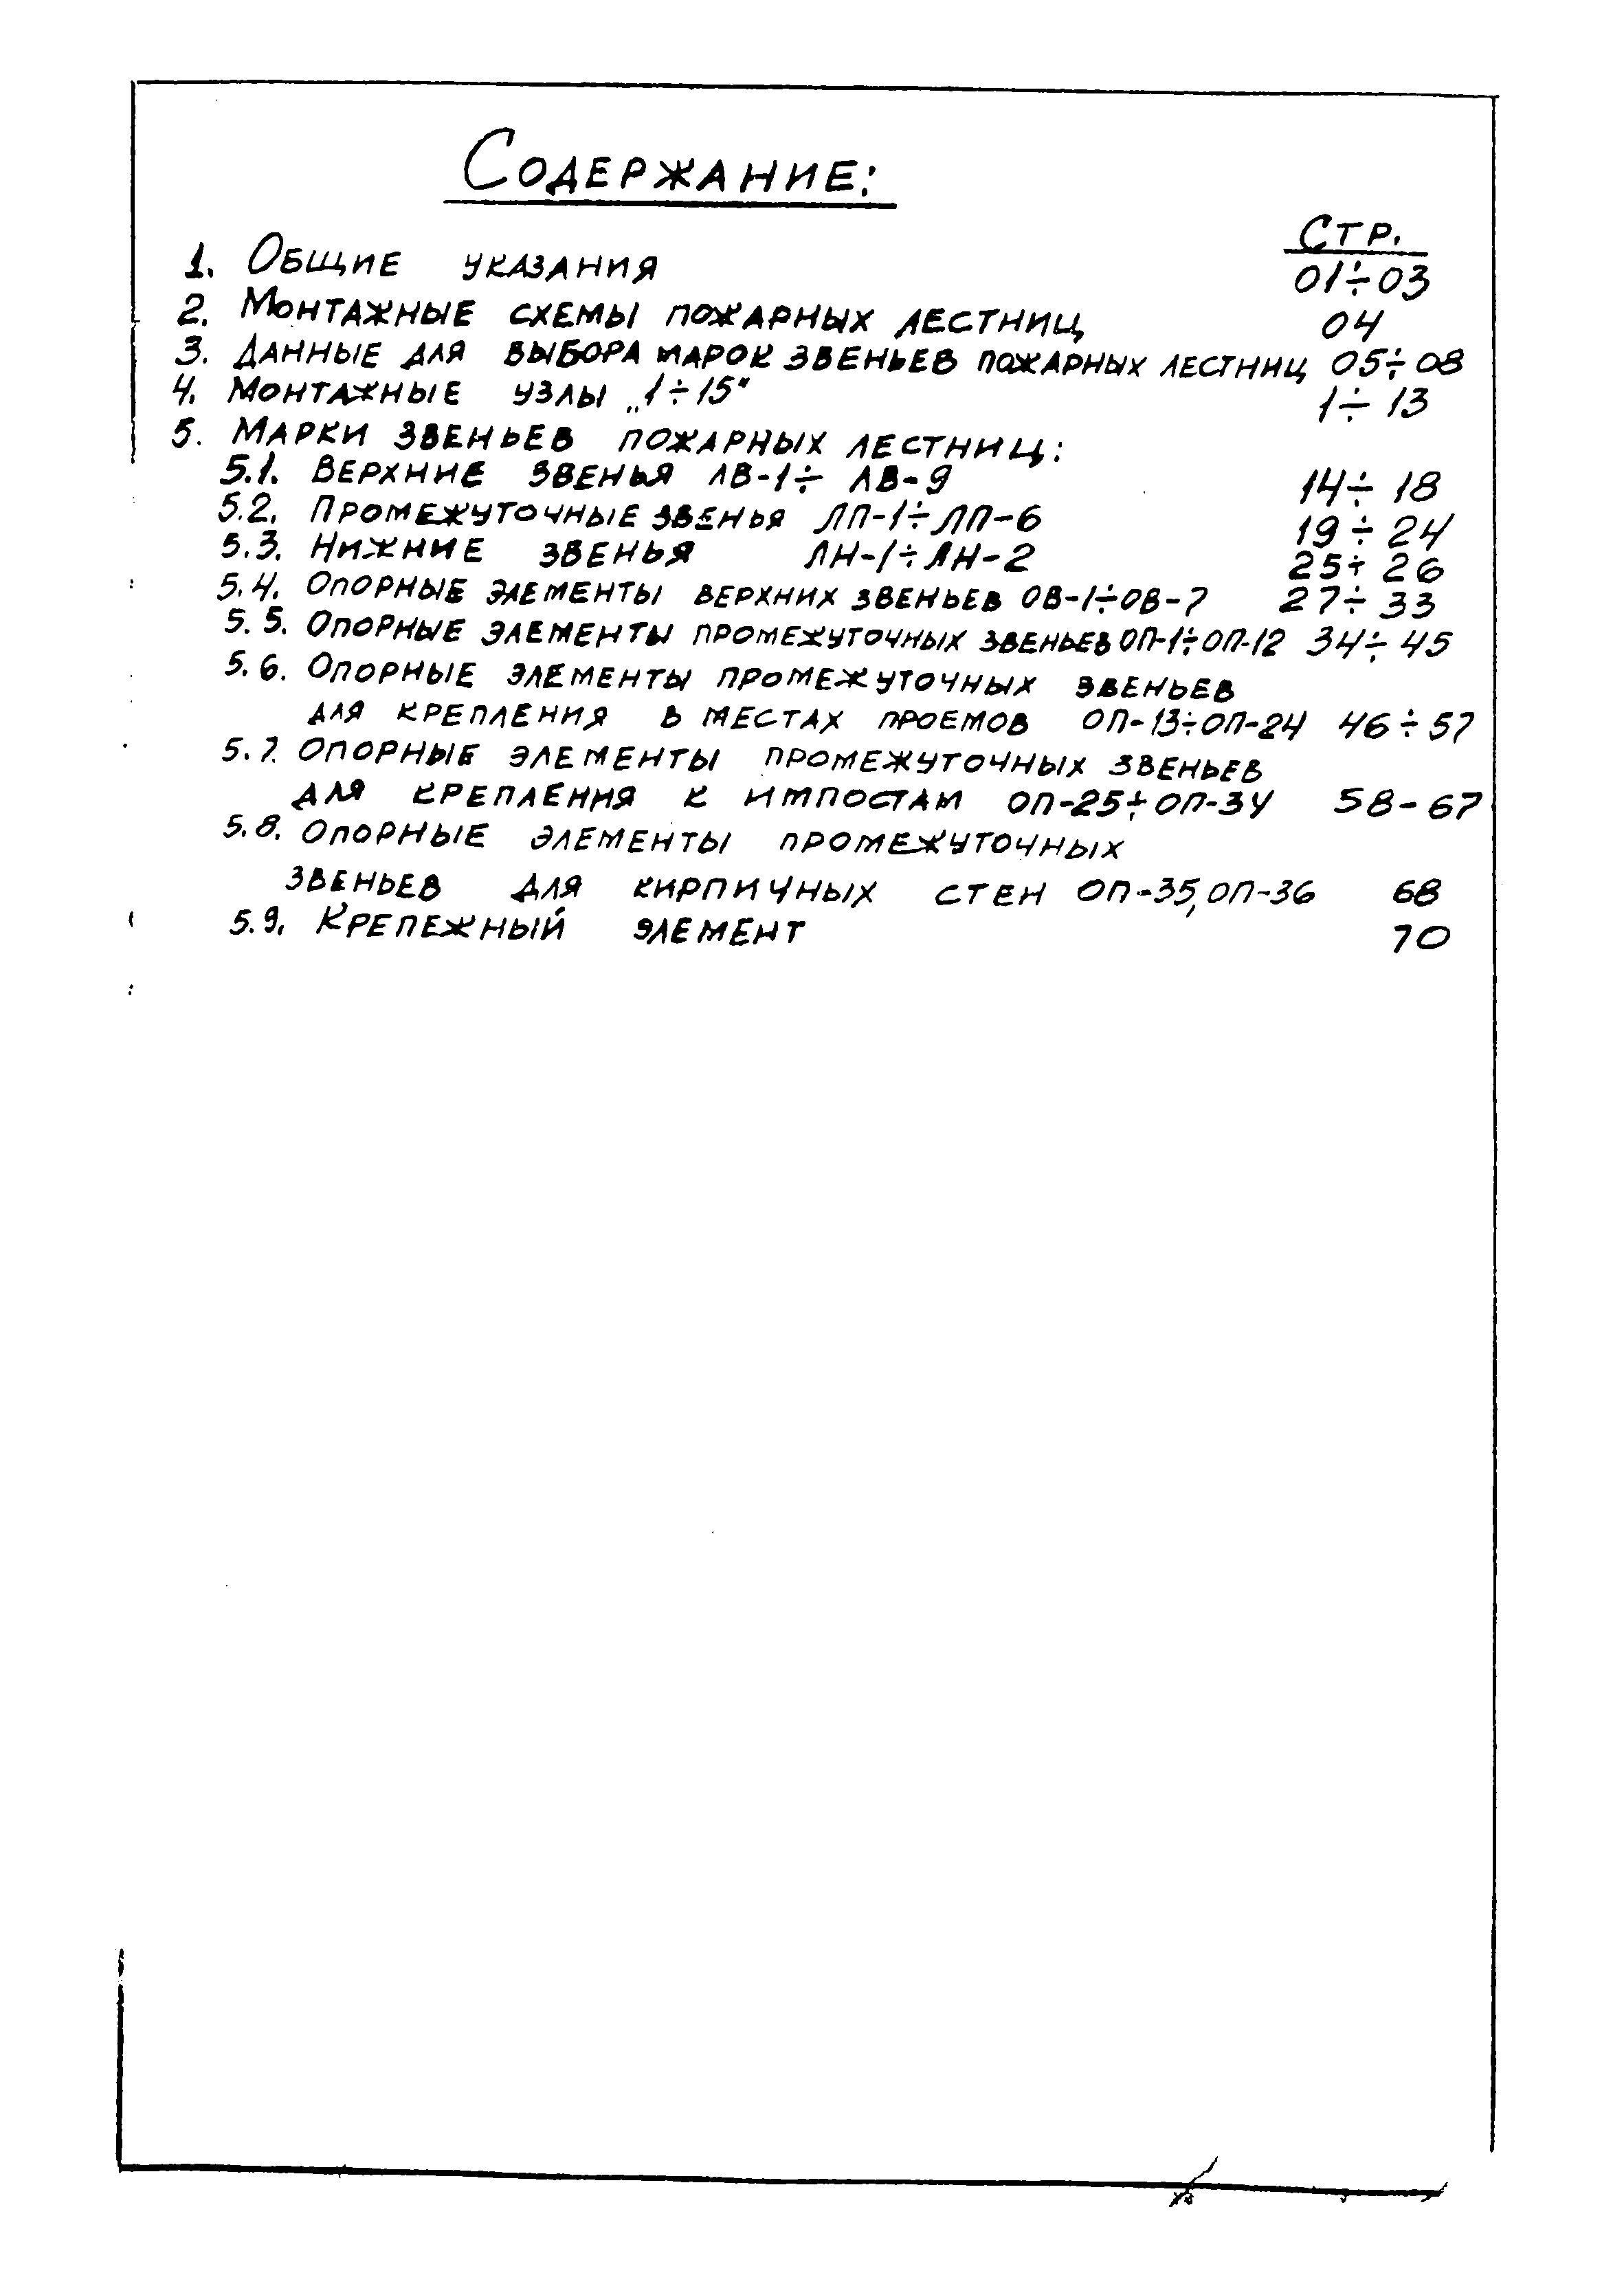 Содержание:
Стр.
1. Общие указания 01÷03
2. Монтажные схемы пожарных лестниц 04
3. Данные для выбора марок звеньев пожарных лестниц 05÷08
4. Монтажные узлы „1÷15" 1÷13
5. Марки звеньев пожарных лестниц:
5.1. Верхние звенья ЛВ-1÷ЛВ-9 14÷18
5.2. Промежуточные звенья ЛП-1÷ЛП-6 19÷24
5.3. Нижние звенья ЛН-1÷ЛН-2 25÷26
5.4. Опорные элементы верхних звеньев ОВ-1÷ОВ-7 27÷33
5.5. Опорные элементы промежуточных звеньев ОП-1÷ОП-12 34÷45
5.6. Опорные элементы промежуточных звеньев
для крепления в местах проемов ОП-13÷ОП-24 46÷57
5.7. Опорные элементы промежуточных звеньев
для крепления к импостам ОП-25÷ОП-34 58-67
5.8. Опорные элементы промежуточных
звеньев для кирпичных стен ОП-35, ОП-36 68
5.9. Крепежный элемент 70